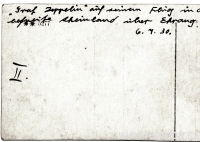 "Graf Zeppelin" auf seinem Flug in d
befreite Rheinland über Ehrang.
6. 7. 30.
II.